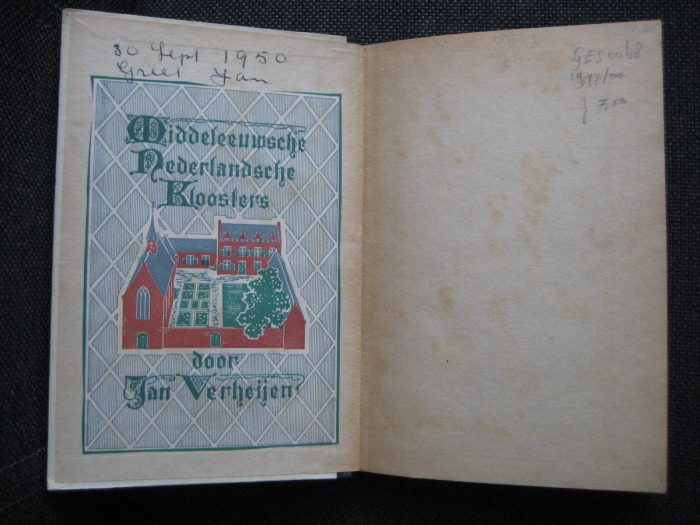 30 Sept 1950
Greet Jan
Middeleeuwsche
Nederlandsche
Kloosters
door
Jan Verheijen
GES0068
1947/00
f 7,50